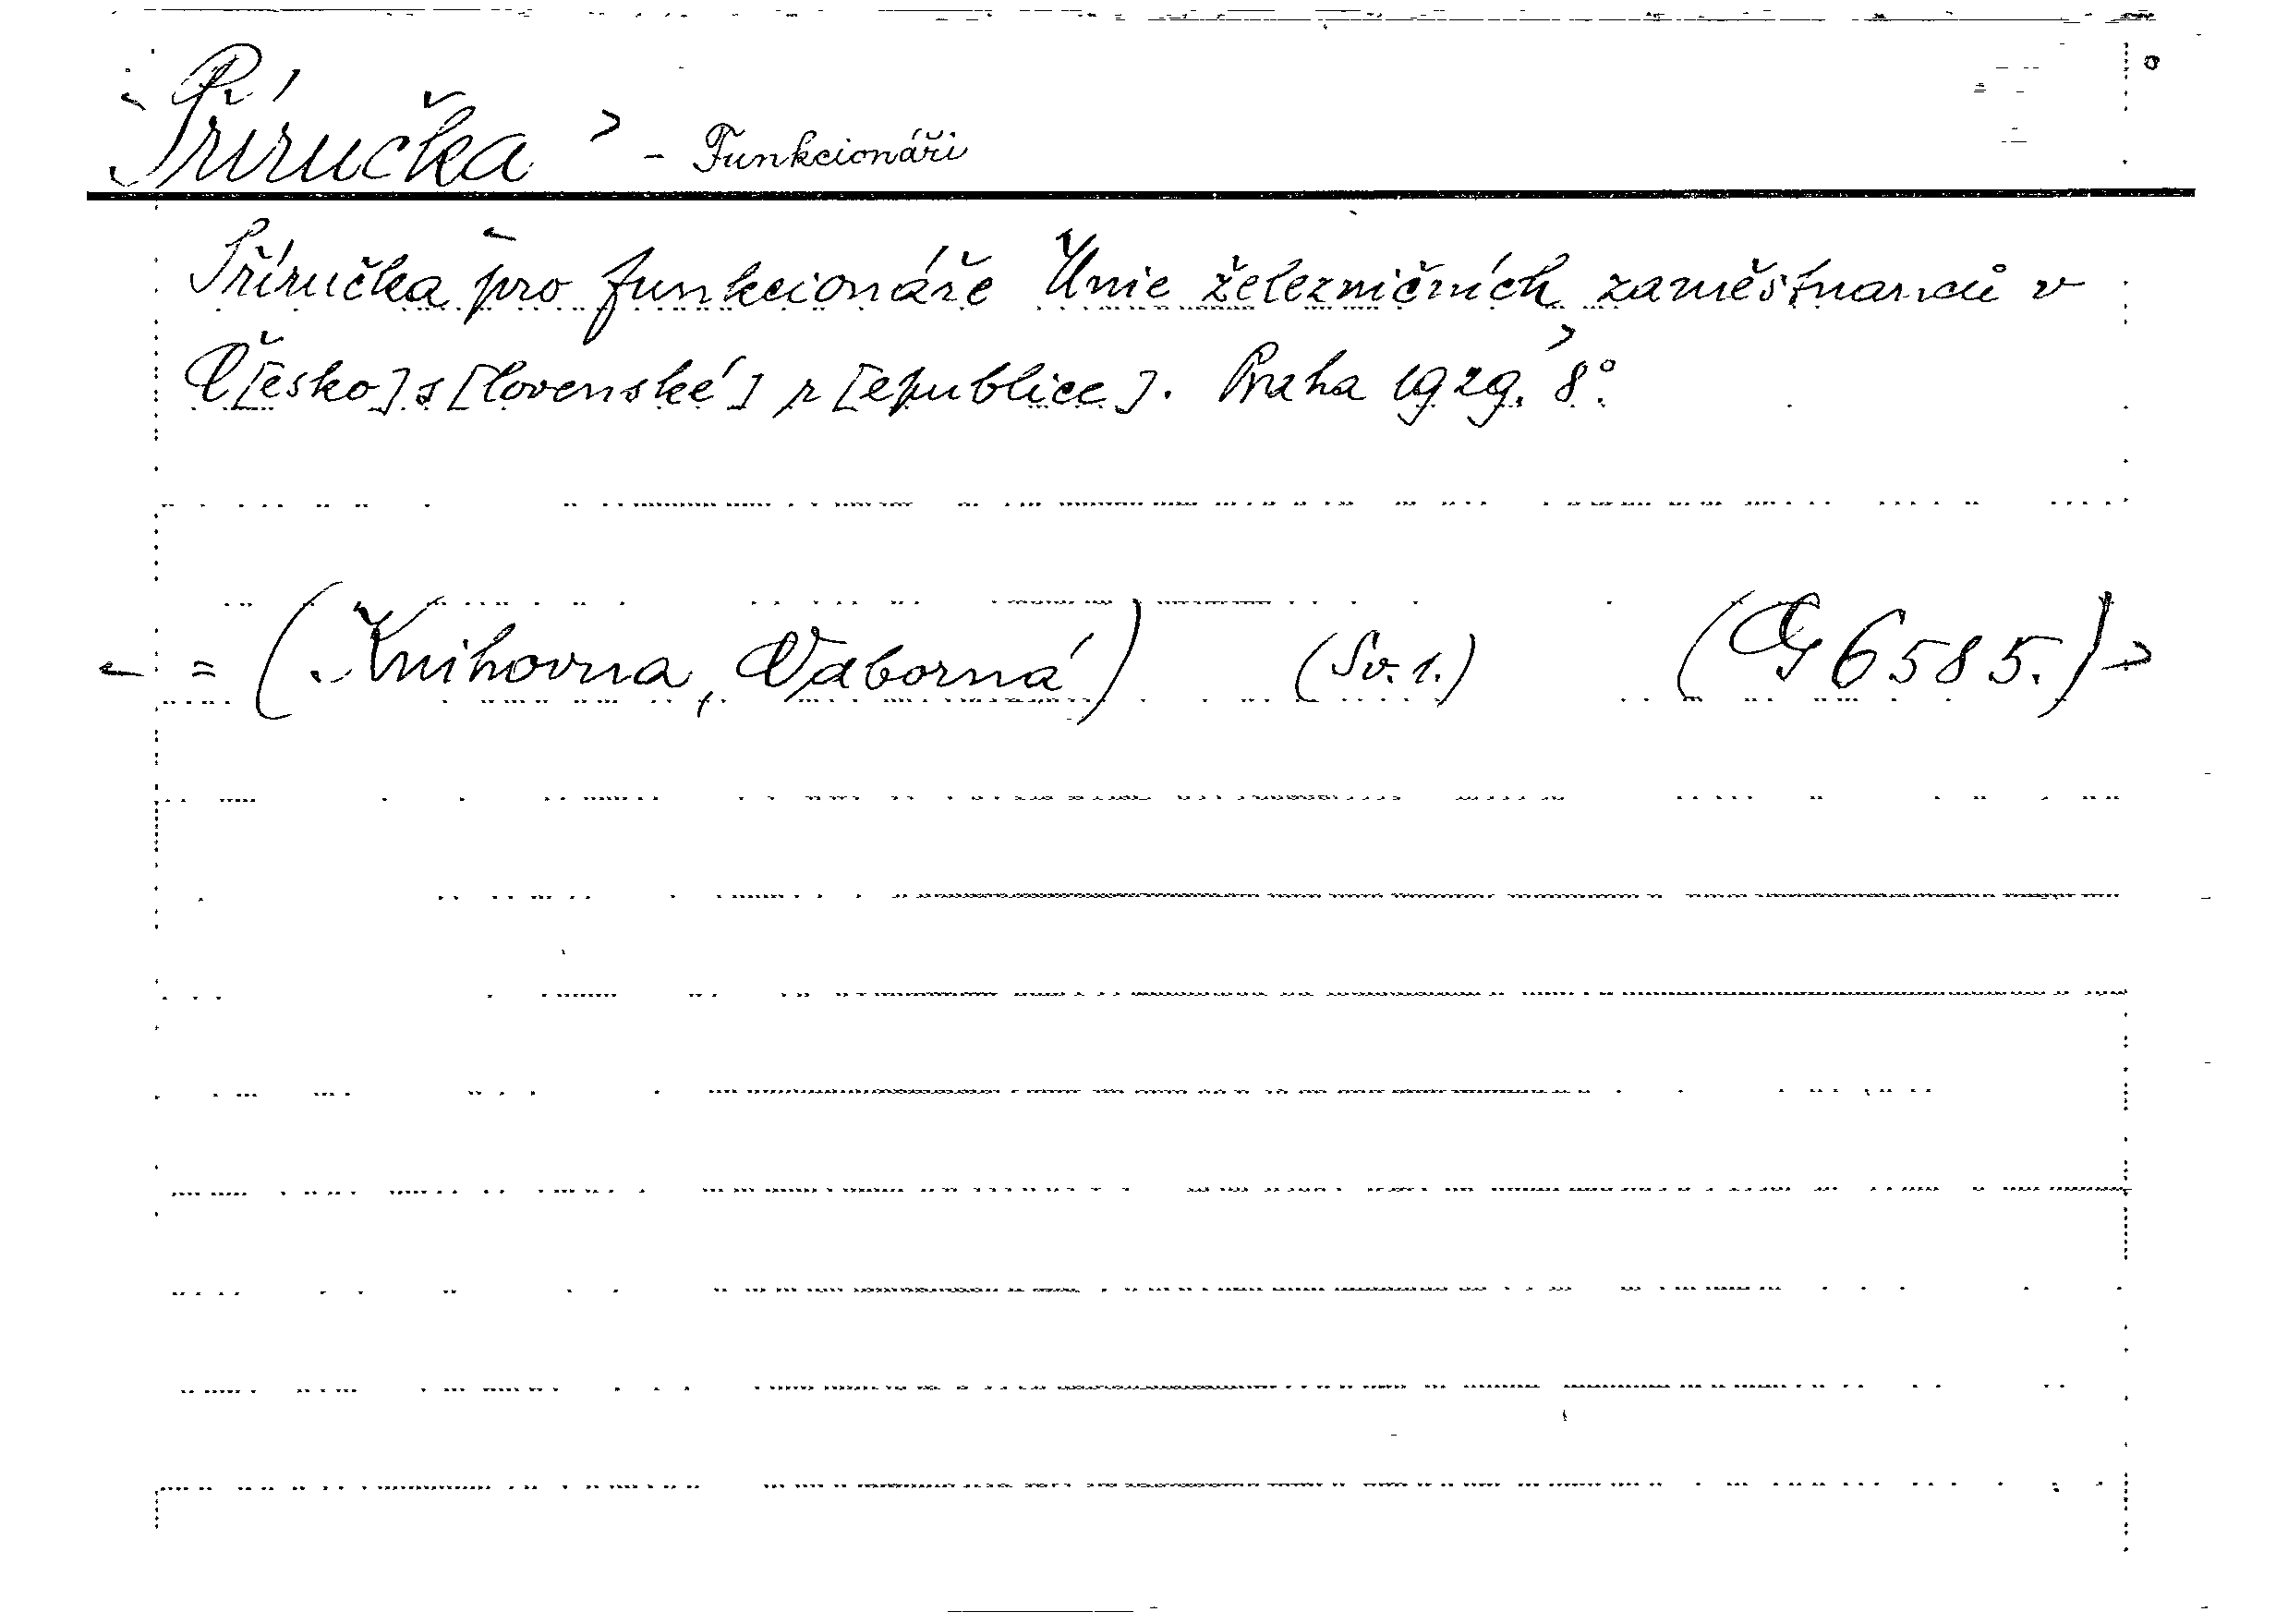 Příručka - Funkcionáři
Příručka pro funkcionáře Unie železničních zaměstnanců v
Č[esko]s[lovenské] r[epublice]. Praha 1929. 8°.
= (Knihovna, Odborná) (Sv. 1.) (G 6585.)